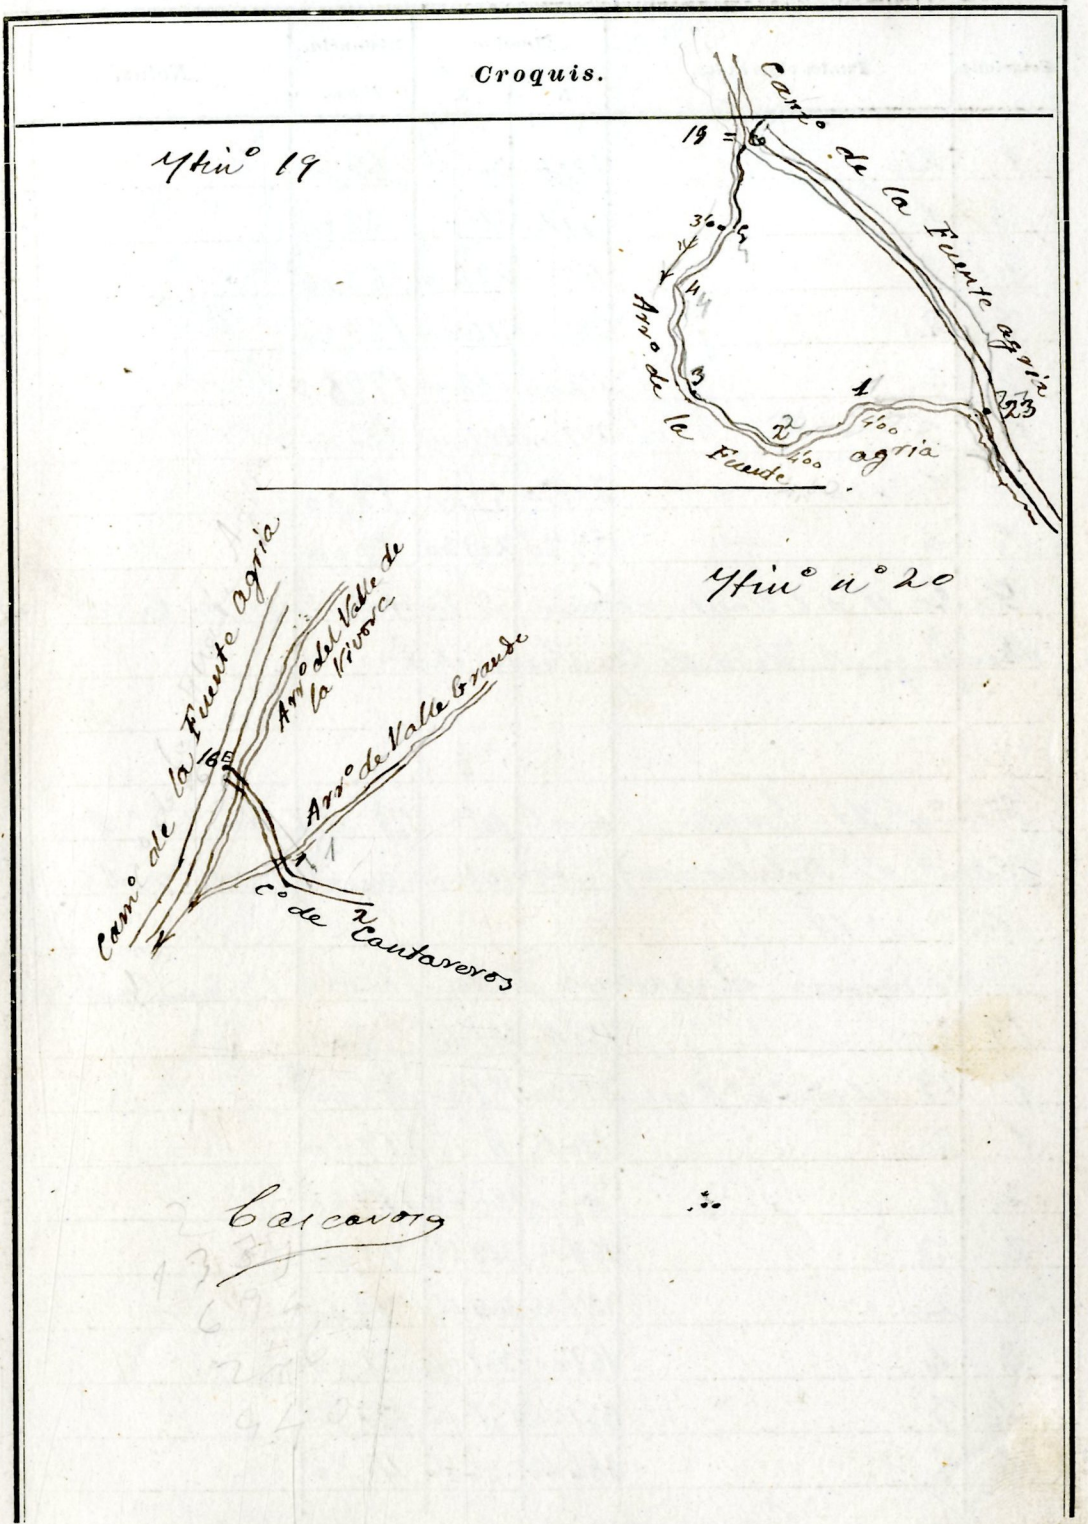 Croquis.
Ytinº 19
Camº de la Fuente agria
19 = 6
3'60
5
4
4
3
2
2
4'00
1
4'00
23
Arrº de la Fuente agria
Ytinº nº 20
Camº de la Fuente agria
Arrº del Valle de
la Vivora
Arrº de Valle Grande
16
1
1
2
Cº de Cantareros